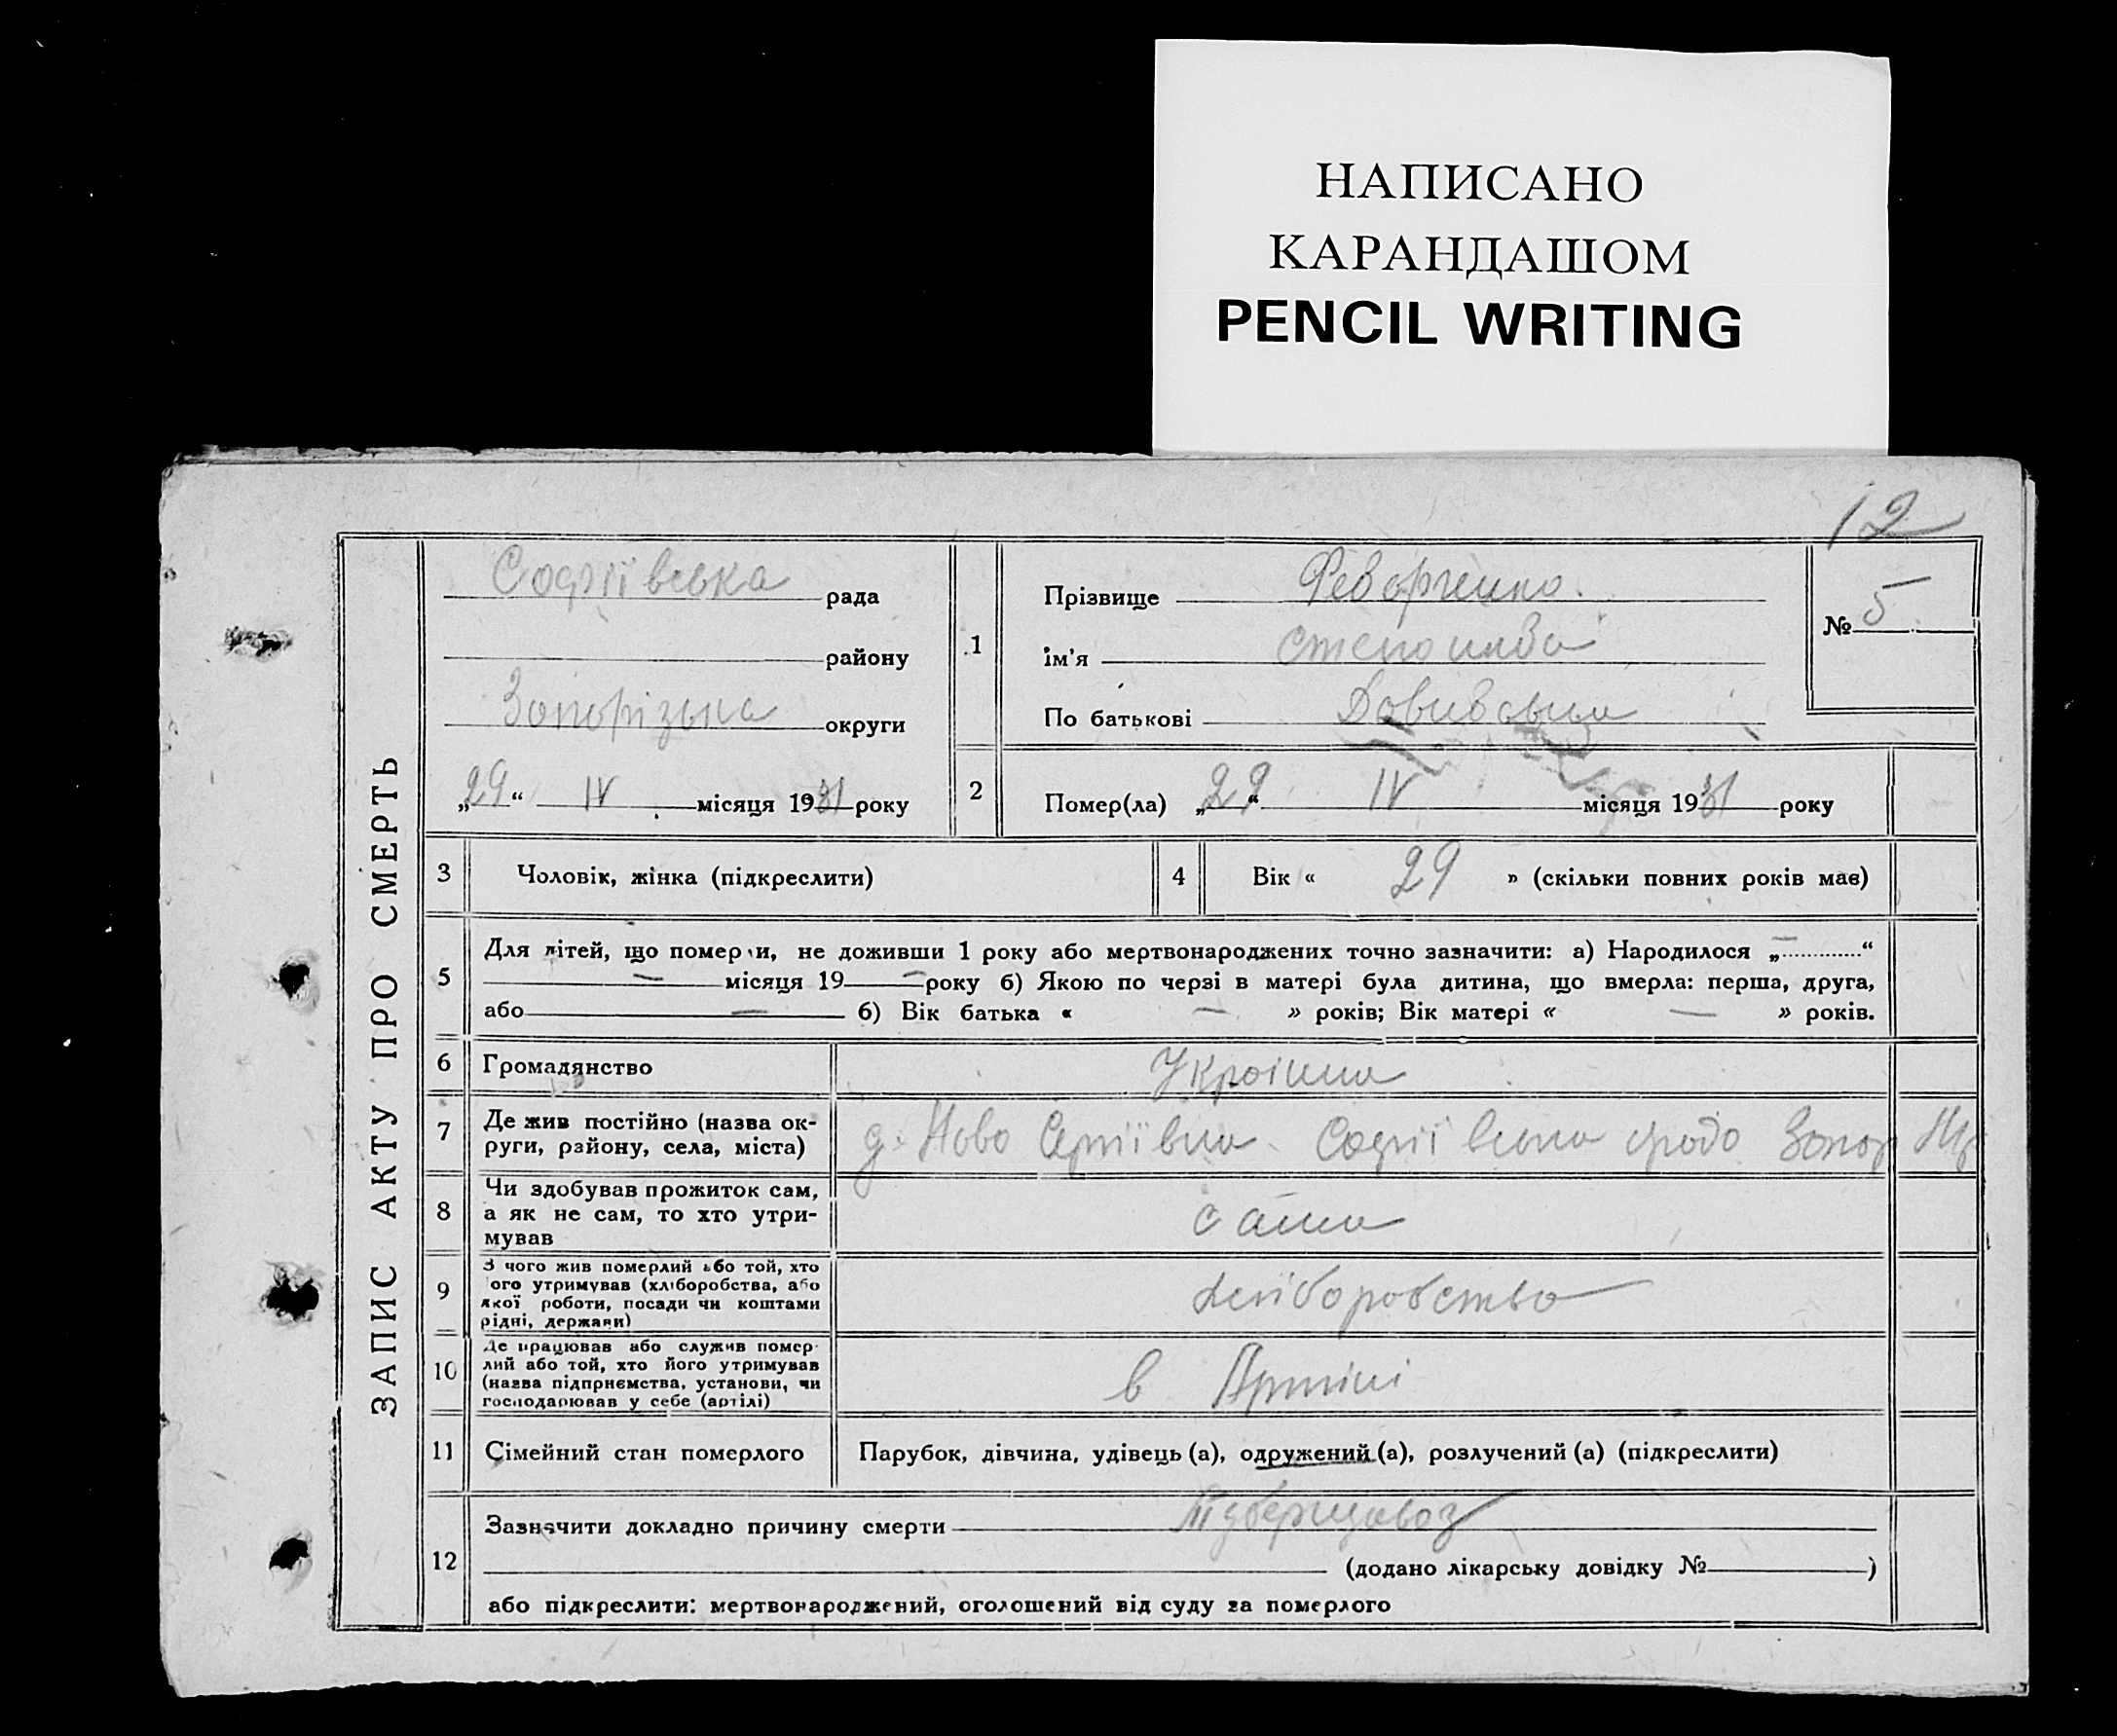 НАПИСАНО
КАРАНДАШОМ
PENCIL WRITING
12
ЗАПИС АКТУ ПРО СМЕРТЬ
Софіївська рада
району
Запорізька округи
„29“ IV місяця 1931 року
1
Прізвище
ім'я
По батькові
№ 5
2
Помер(ла) „29“ IV місяця 1931 року
3
Чоловік, жінка (підкреслити)
4
Вік « 29 » (скільки повних років має)
5
Для дітей, що померли, не доживши 1 року або мертвонароджених точно зазначити: а) Народилося „—“
— місяця 19— року б) Якою по черзі в матері була дитина, що вмерла: перша, друга,
або — б) Вік батька « — » років; Вік матері « — » років.
6
Громадянство
Україна
7
Де жив постійно (назва ок-
руги, району, села, міста)
Ново Сергіївка Софіївська Запор
8
Чи здобував прожиток сам,
а як не сам, то хто утри-
мував
сама
9
З чого жив померлий або той, хто
ого утримував (хліборобства, або
якої роботи, посади чи коштами
рідні, держави)
хліборобство
10
Де працював або служив помер
лий або той, хто його утримував
(назва підприємства, установи, чи
господарював у себе (артілі)
в Артілі
11
Сімейний стан померлого
Парубок, дівчина, удівець (а), одружений (а), розлучений (а) (підкреслити)
12
Зазначити докладно причину смерти
(додано лікарську довідку № )
або підкреслити: мертвонароджений, оголошений від суду за померлого